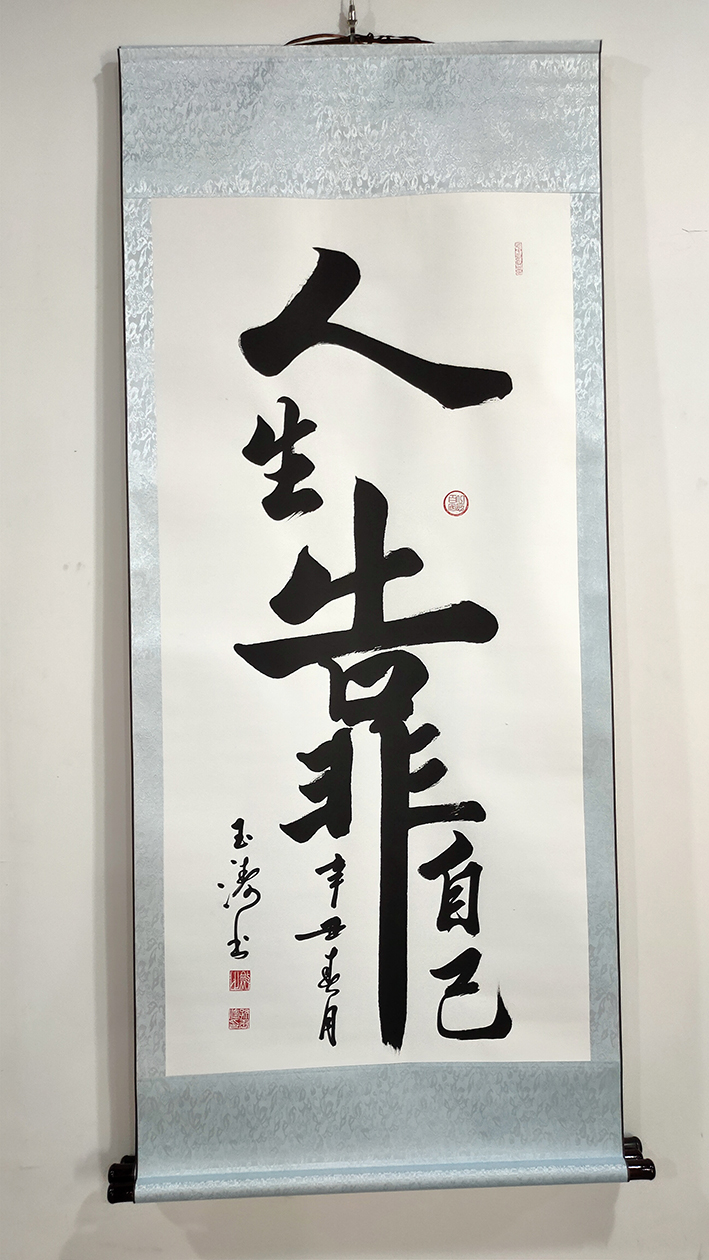 人生靠自己
辛丑春月
玉涛书